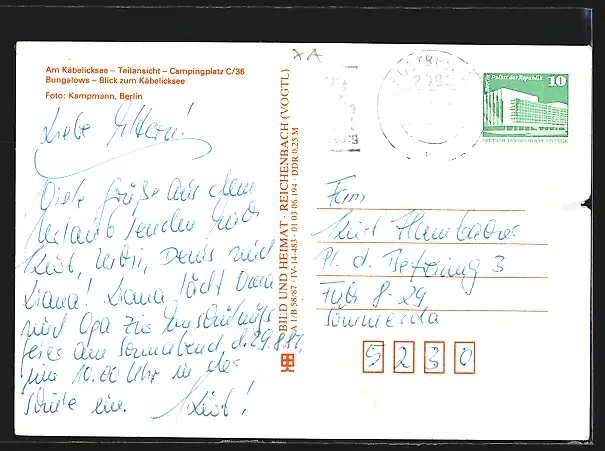 Am Käbelicksee – Teilansicht – Campingplatz C/36
Bungalows – Blick zum Käbelicksee
Foto: Kampmann, Berlin
Liebe Eltern!
Viele Grüße aus dem
Urlaub senden euch
Kurt, Denis und
Liana! Liana lädt Oma
und Opa zur Einschulungs
feier am Sonnabend, d. 29.8.87,
um 10.00 Uhr in der
Schule ein. Kurt!
BILD UND HEIMAT · REICHENBACH (VOGTL)
A 1/B 58/87 · IV-14-483 · 01 03 06 194 · DDR 0,25 M
Berlin Palast der Republik 10
DEUTSCHE DEMOKRATISCHE REPUBLIK
Fam
Kurt
Pl. d. Befreiung 3
8-29
Sömmerda
5 2 3 0